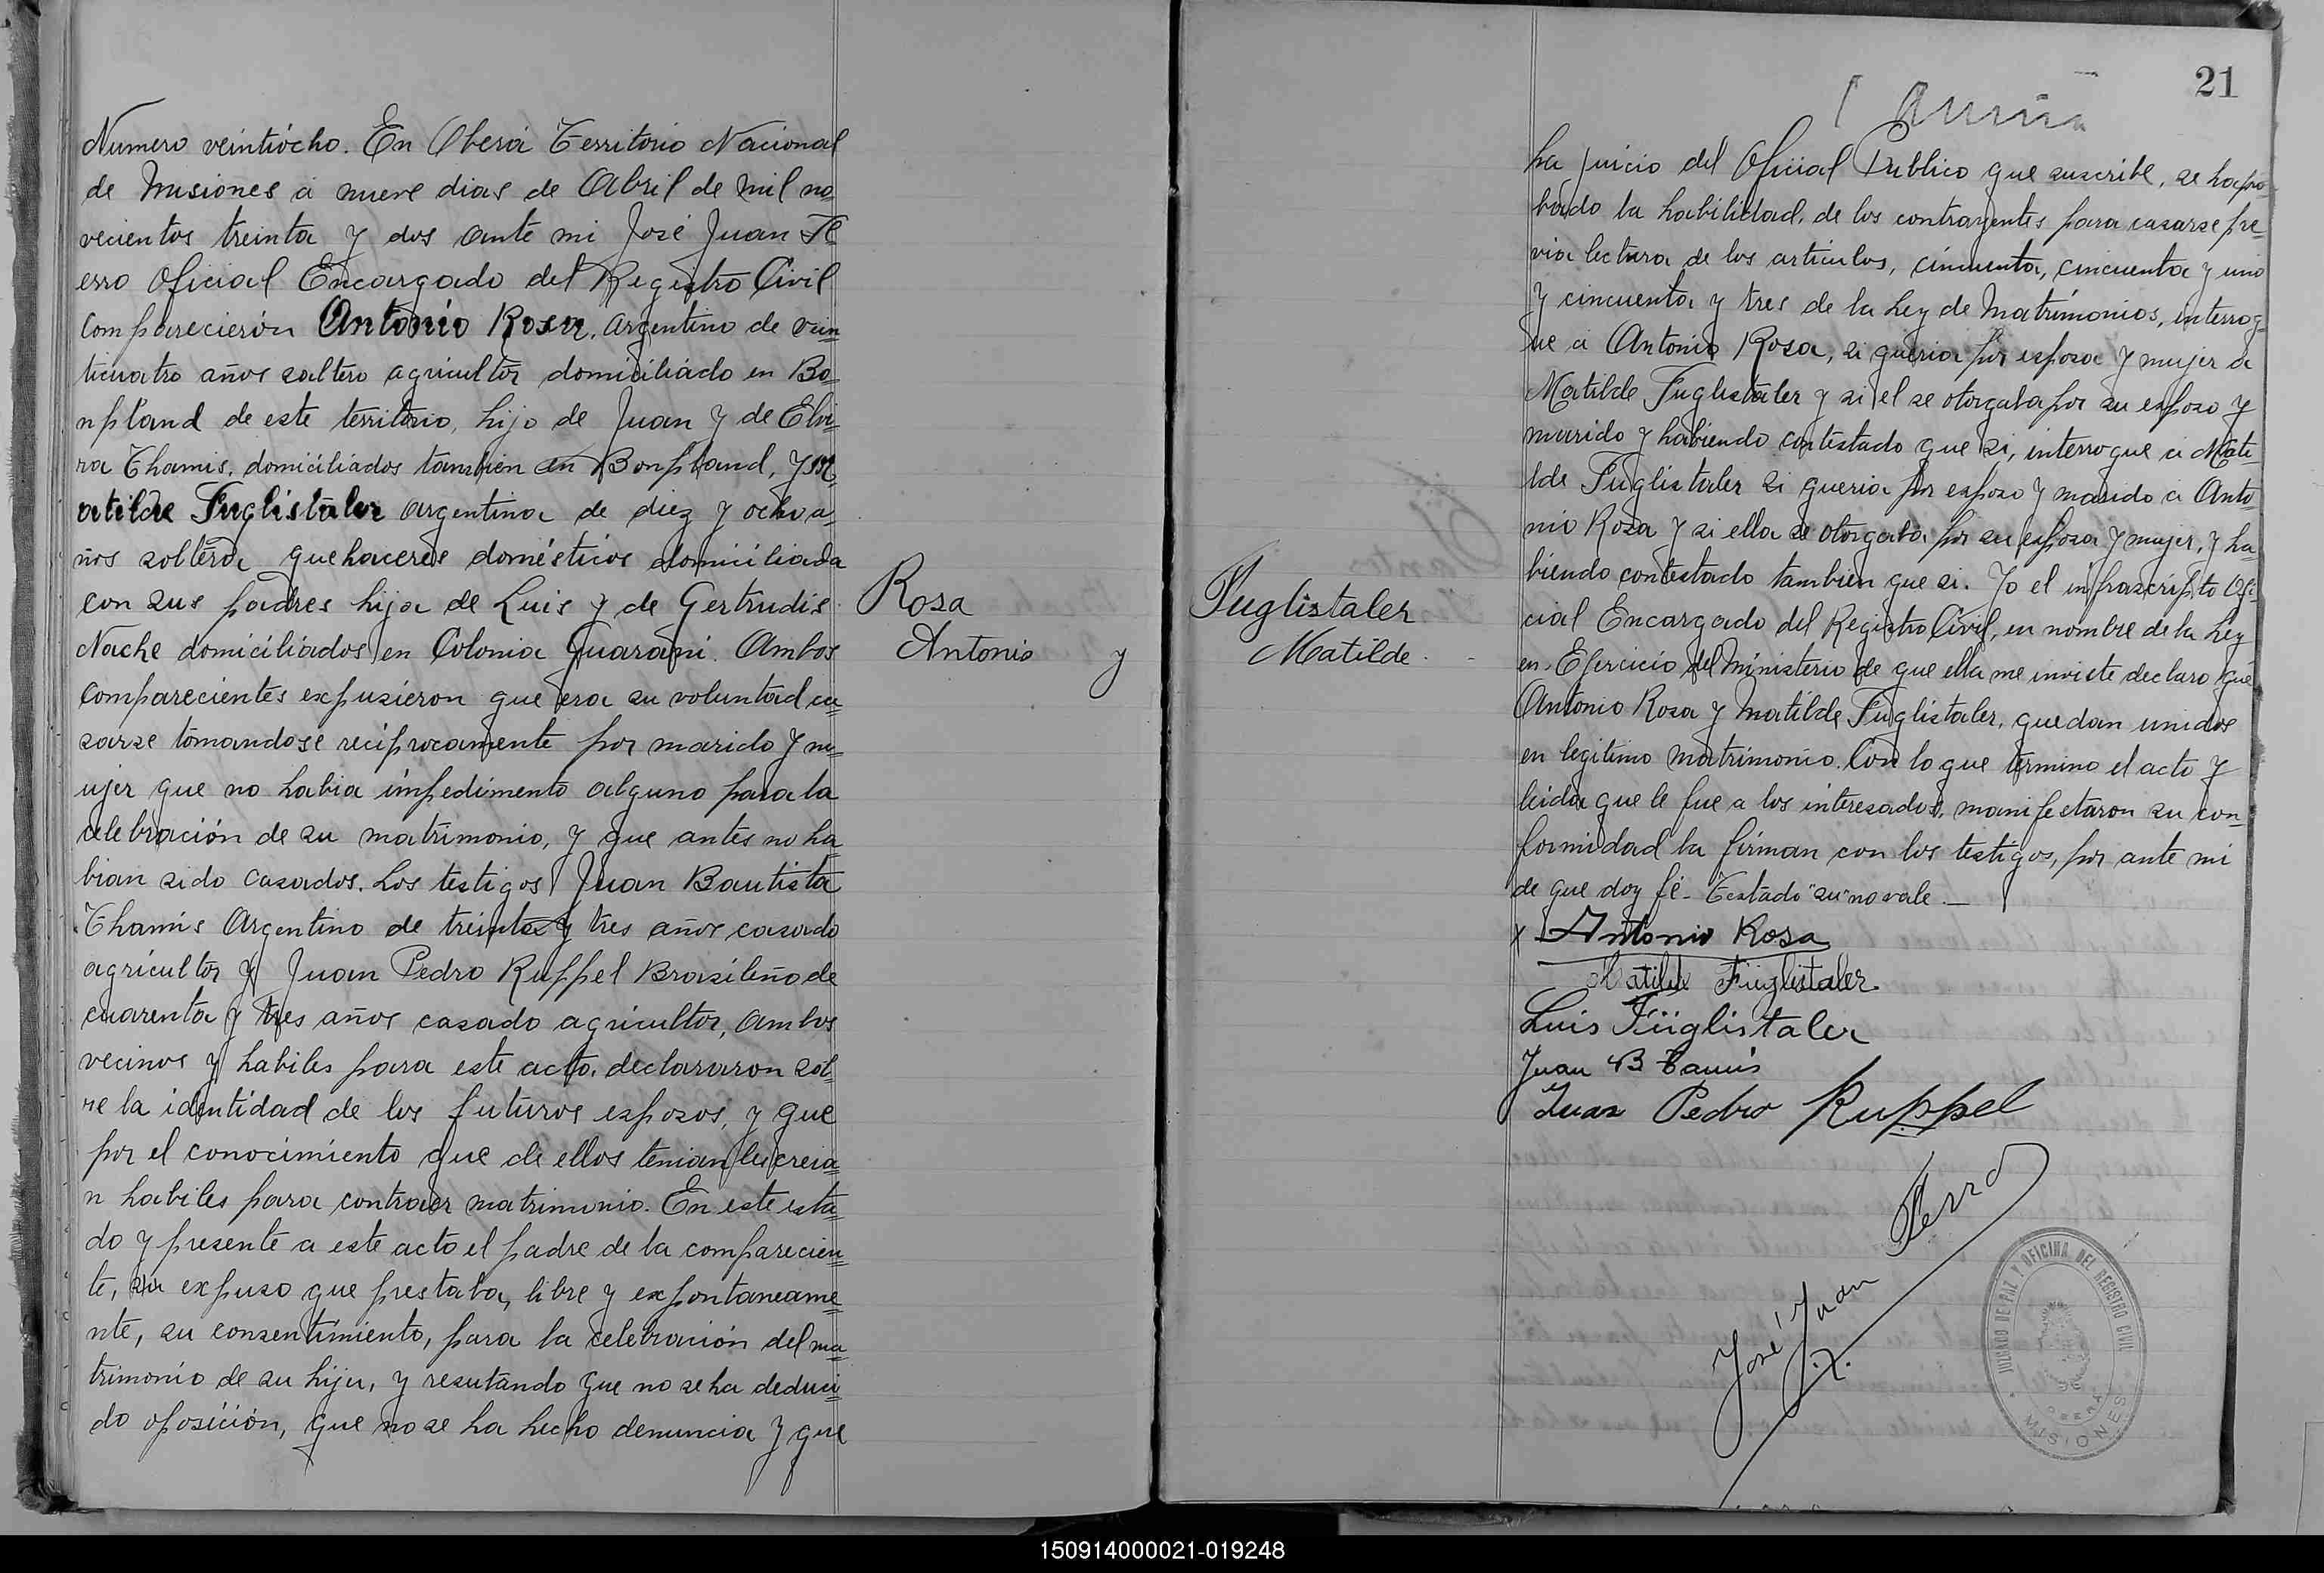 Numero veintiocho. En Oberá Territorio Nacional
de Misiones á nueve dias de Abril de mil no=
vecientos treinta y dos ante mi José Juan Fe=
erro Oficial Encargado del Registro Civil
Comparecierón Antonio Rosa, argentino de vein=
ticuatro años soltero agricultor domiciliado en Bo=
npland de este territorio, hijo de Juan y de Elvi=
ra Thamis, domiciliados tambien en Bonpland, y M=
atilde Fuglistaler argentina de diez y ocho a=
ños soltera quehaceres domésticos domiciliada
con sus padres hija de Luis y de Gertrudis
Nache domiciliados en Colonia Guaraní. Ambos
comparecientes expusieron que era su voluntad ca=
sarse tomandose recíprocamente por marido y m=
ujer que no habia impedimento alguno para la
celebración de su matrimonio, y que antes no ha=
bian sido casados. Los testigos Juan Bautista
Thamis Argentino de treinta y tres años casado
agricultor y Juan Pedro Ruppel Brasileño de
cuarenta y tres años casado agricultor, ambos
vecinos y habiles para este acto, declararon sob=
re la identidad de los futuros esposos, y que
por el conocimiento que de ellos tenian les creia=
n habiles para contraer matrimonio. En este esta=
do y presente a este acto el padre de la comparecien=
te, su expuso que prestaba, libre y expontaneame=
nte, su consentimiento, para la celebración del ma=
trimonio de su hija, y resutando que no se ha deduci=
do oposición, que no se ha hecho denuncia y que
Rosa
Antonio y
Fuglistaler
Matilde
21
ha juicio del Oficial Publico que suscribe, se ha pro=
bado la habilidad, de los contrayentes para casarse pre=
via lectura de los artículos, cincuenta, cincuenta y uno
y cincuenta y tres de la Ley de Matrimonios, interrog=
ue a Antonio Rosa, si queria por esposa y mujer a
Matilde Fuglistaler y si el se otorgaba por su esposo y
marido y habiendo contestado que si, interrogue a Mati=
lde Fuglistaler si queria por esposo y marido a Anto=
nio Rosa y si ella se otorgaba por su esposa y mujer, y ha=
biendo contestado tambien que si. Yo el infrascripto Ofi=
cial Encargado del Registro Civil, en nombre de la Ley
en Ejercicio del Ministerio de que ella me inviste declaro que
Antonio Rosa y Matilde Fuglistaler, quedan unidos
en legitimo matrimonio. Con lo que termino el acto y
leida que le fue a los interesados, manifestaron su con=
formidad la firman con los testigos, por ante mi
de que doy fé - Testado "su" no vale.—
x Antonio Rosa
Matilde Füglistaler
Luis Füglistaler
Juan B Tamis
Juan Pedro Ruppel
José Juan Ferro
JUZGADO DE PAZ Y OFICINA DEL REGISTRO CIVIL
OBERA
MISIONES
150914000021-019248